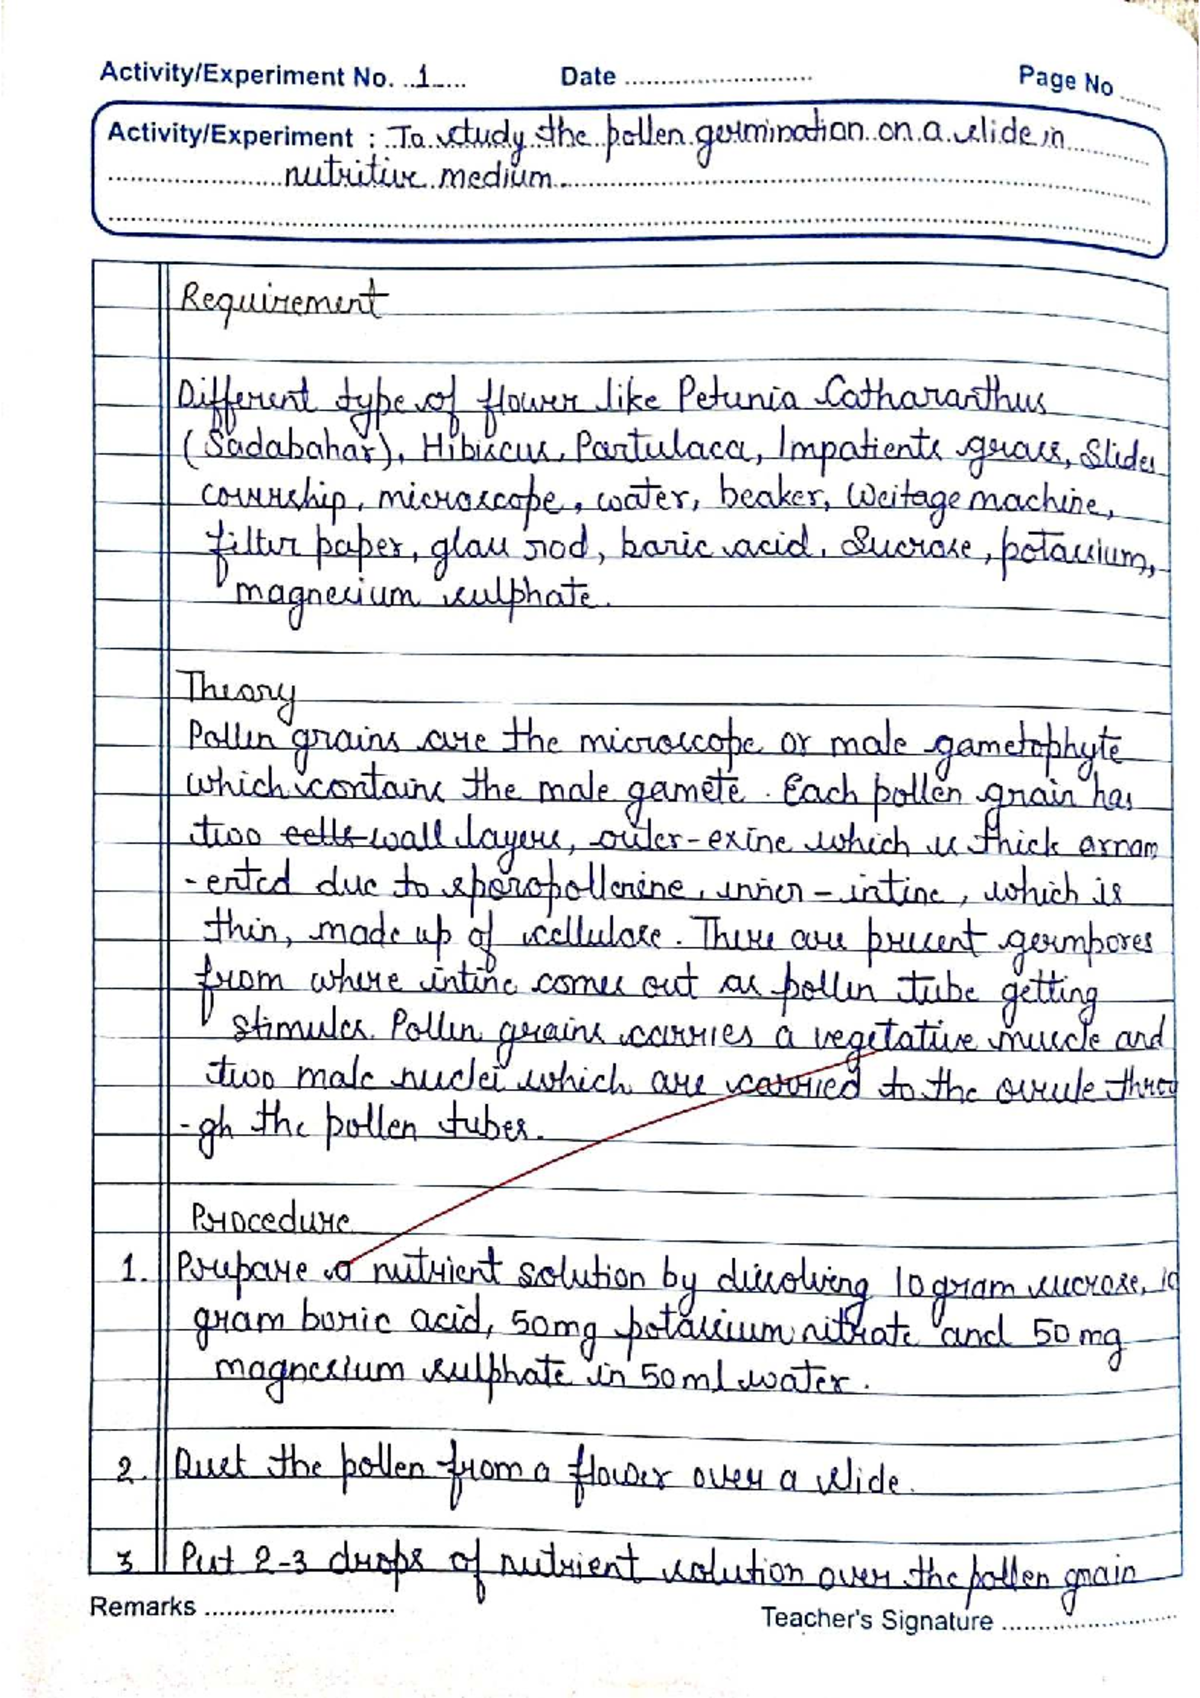 Activity/Experiment No. 1 Date Page No
Activity/Experiment : To study the pollen germination on a slide in
nutritive medium.
Requirement
Different type of flower like Petunia Catharanthus
(Sadabahar), Hibiscus, Partulaca, Impatients grass, Slides
covership, microscope, water, beaker, Weitage machine,
filter paper, glass rod, boric acid, Sucrose, potassium,
magnesium sulphate.
Theory
Pollen grains are the microscope or male gametophyte
which contains the male gamete. Each pollen grain has
two cells wall layers, outer-exine which is thick ornam
-ented due to sporopollenine, inner-intine, which is
thin, made up of cellulose. There are present germpores
from where intine comes out as pollen tube getting
stimules. Pollen grains carries a vegetative muscle and
two male nuclei which are carried to the ovule throu
-gh the pollen tubes.
Procedure
1. Prepare a nutrient solution by dissolving 10 gram sucrose, 10
gram boric acid, 50mg potassium nitrate and 50 mg
magnesium sulphate in 50 ml water.
2. Dust the pollen from a flower over a slide.
3 Put 2-3 drops of nutrient solution over the pollen grain
Remarks Teacher's Signature